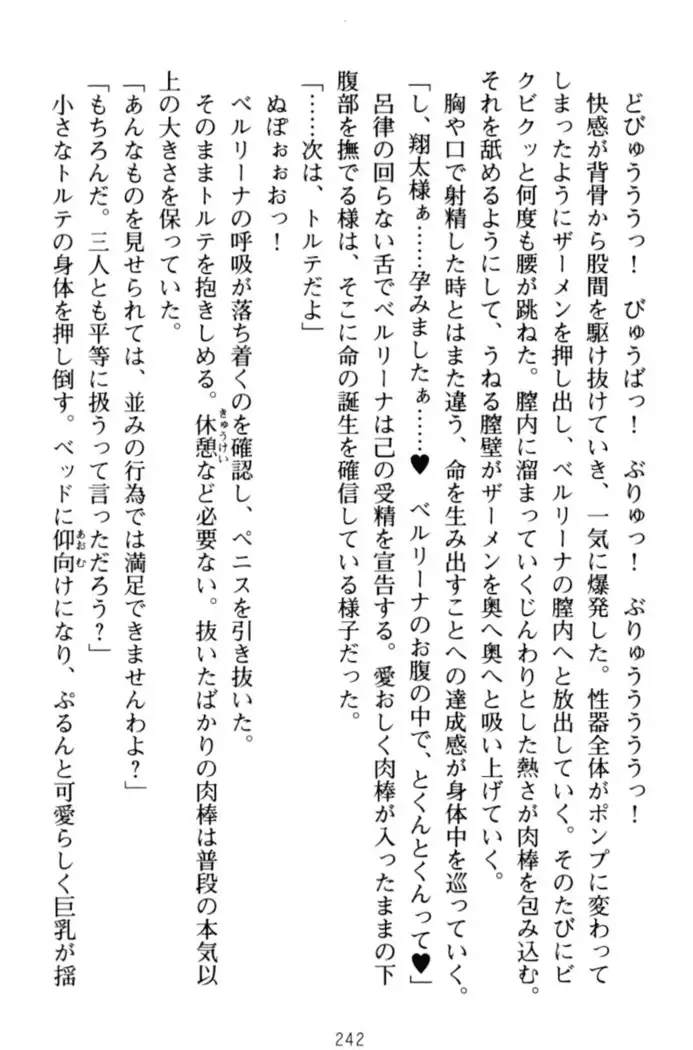 どぴゅううっ！　びゅうばっ！　ぶりゅっ！　ぶりゅうううううっ！
快感が背骨から股間を駆け抜けていき、一気に爆発した。性器全体がポンプに変わって
しまったようにザーメンを押し出し、ベルリーナの膣内へと放出していく。そのたびにビ
クビクッと何度も腰が跳ねた。膣内に溜まっていくじんわりとした熱さが肉棒を包み込む。
それを舐めるようにして、うねる膣壁がザーメンを奥へ奥へと吸い上げていく。
胸や口で射精した時とはまた違う、命を生み出すことへの達成感が身体中を巡っていく。
「し、翔太様ぁ……孕みましたぁ……♥　ベルリーナのお腹の中で、とくんとくんって♥」
呂律の回らない舌でベルリーナは己の受精を宣告する。愛おしく肉棒が入ったままの下
腹部を撫でる様は、そこに命の誕生を確信している様子だった。
「……次は、トルテだよ」
ぬぽぉぉおっ！
ベルリーナの呼吸が落ち着くのを確認し、ペニスを引き抜いた。
そのままトルテを抱きしめる。休憩（きゅうけい）など必要ない。抜いたばかりの肉棒は普段の本気以
上の大きさを保っていた。
「あんなものを見せられては、並みの行為では満足できませんわよ？」
「もちろんだ。三人とも平等に扱うって言っただろう？」
小さなトルテの身体を押し倒す。ベッドに仰向（あおむ）けになり、ぷるんと可愛らしく巨乳が揺
242